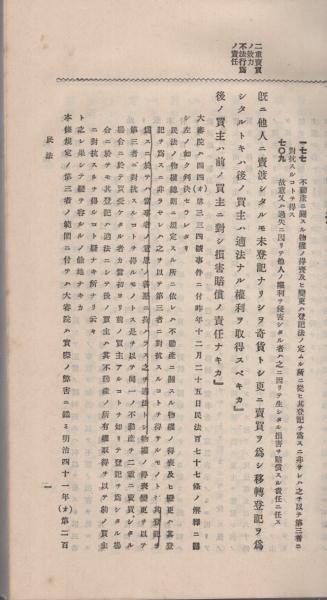 二重賣買
ノ效力
不法行爲
ノ責任
一七七　不動産ニ關スル物權ノ得喪及ヒ變更ハ登記法ノ定ムル所ニ從ヒ其登記ヲ爲スニ非サレハ之ヲ以テ第三者ニ
對抗スルコトヲ得ス
七〇九　故意又ハ過失ニ因リテ他人ノ權利ヲ侵害シタル者ハ之ニ因リテ生シタル損害ヲ賠償スル責任ニ任ス
既ニ他人ニ賣渡シタルモ未登記ナリシヲ奇貨トシ更ニ賣買ヲ爲シ移轉登記ヲ爲
シタルトキハ後ノ買主ハ適法ナル權利ヲ取得スベキカ』
後ノ買主ハ前ノ買主ニ對シ損害賠償ノ責任ナキカ』
大審院ハ四四(オ)第三三四號事件ニ付昨年十二月二十五日民法百七十七條ノ解釋ニ關
シ左ノ如ク判決セラレタリ
民法ノ物權總則ニ規定スル所ニ依レハ不動産ニ關スル物權ノ得喪及ヒ變更ハ其登
記ヲ爲スニ非ラサレハ之ヲ以テ第三者ニ對抗スルコトヲ得サルモノトシ其登記ヲ
爲スニ於テハ當事者ノ意思ノ善惡ニ拘ハラス之ヲ適法トシ物權ノ得喪變更ヲ以テ
第三者ニ對抗スルコトヲ得ルモノトス是ヲ以テ同一ノ不動産ヲ二重ニ賣買シタル
場合ニ於テ買受ケタル者カ當初ヨリ前ノ買主アルコトヲ知リテ登記ヲ爲シタル場
合ニ於テモ其登記ハ適法ニシテ後ノ買主ハ其不動産ノ所有權取得ヲ以テ前ノ買主
ニ對抗スルヲ得ルコト疑ナキ所ナリ云々
ト之レ果シテ疑ヲ容ルル餘地ナキカ
本條規定ノ第三者ノ範圍ニ付テハ大審院ハ實際ノ弊害ニ鑑ミ明治四十一年(オ)第二百
民法
一